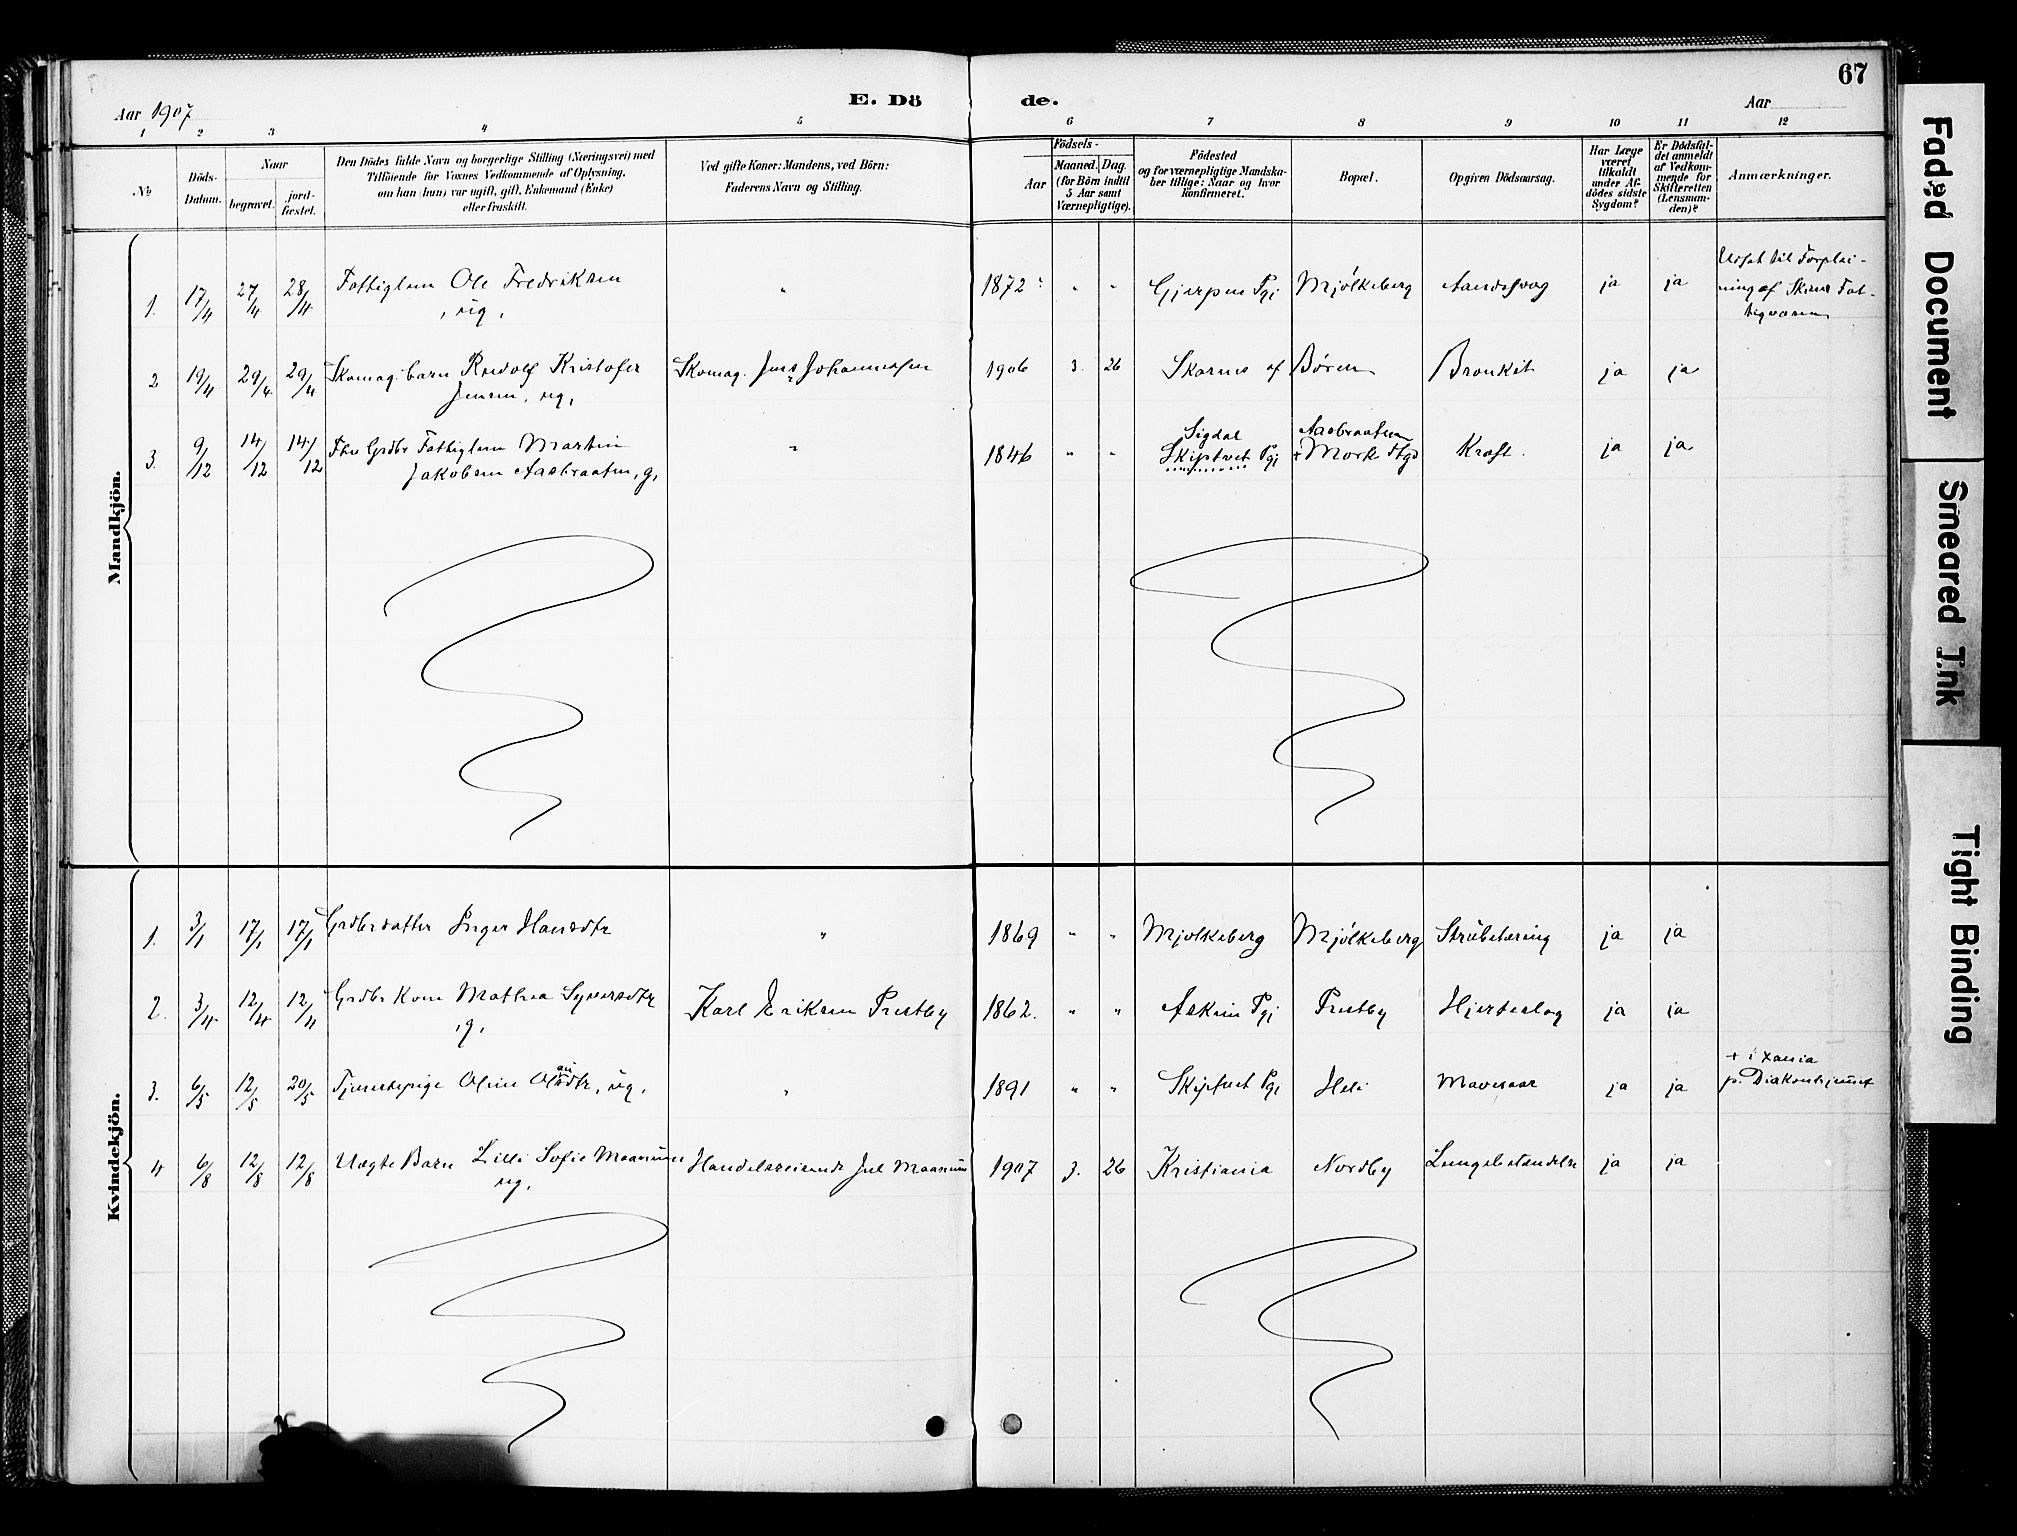 67
Aar 1907
E. Dö
de.
Aar
1 2 3 4 5 6 7 8 9 10 11 12
No
Döds-
Datum.
Naar
begravet.
jord-
fæstet.
Den Dödes fulde Navn og borgerlige Stilling (Næringsvei) med
Tilföiende for Voxnes Vedkommende af Oplysning,
om han (hun) var ugift, gift, Enkemand (Enke)
eller fraskilt.
Ved gifte Koner: Mandens, ved Börn:
Faderens Navn og Stilling.
Födsels-
Aar
Maaned. Dag.
(for Börn indtil
5 Aar samt
Værnepligtige).
Födested
og for værnepligtige Mandska-
ber tillige: Naar og hvor
konfirmeret.
Bopæl.
Opgiven Dödsaarsag.
Har Læge
været
tilkaldt
under Af-
dödes sidste
Sygdom?
Er Dödsfal-
det anmeldt
af Vedkom-
mende for
Skifteretten
(Lensman-
den)?
Anmærkninger.
Mandkjön.
1. 17/4 27/4 28/4 Fattiglem Ole Fredriksen " 1872 " " Gjerpen Pgj Mjölkeberg Aandssvag ja ja
, ug,
Udsat til Forplei-
ning af Skiens Fat-
tigvæsen
2 19/4 29/4 29/4 Skomag. barn Rudolf Kristofer Skomag. Jens Johannesen 1906 3. 26 Skarnes af Børen Bronkit ja ja
Jensen, ug,
3. 9/12 14/12 14/12 Fhv Grdbr Fattiglem Martin " 1846 " " Sigdal
Skiptvet Pgj Aasbraaten
Mork Kraft. ja ja
Jakobsen Aasbraaten, g,
Kvindekjön.
1. 3/1 17/1 17/1 Grdbrdatter Inger Hansdtr " 1869 " " Mjølkeberg Mjölkeberg Strubetæring ja ja
2. 3/4 12/4 12/4 Grdbr Kone Mathea Syversdtr Karl Eriksen Prestby 1862. " " Askim Pgj Prestby Hjerteslag ja ja
,g,
3. 6/5 12/5 20/5 Tjenestepige Oline Olausdtr, ug, " 1891 " " Skiptvet Pgj Heli Mavesaar ja ja
+ i Xania
p. Diakonhjemmet
4 6/8 12/8 12/8 Uægte Barn Lilli Sofie Maanum Handelsreisende Jul Maanum 1907 3. 26 Kristiania Nordby Lungebetændelse ja ja
ug,
Faded Document
Smeared Ink
Tight Binding